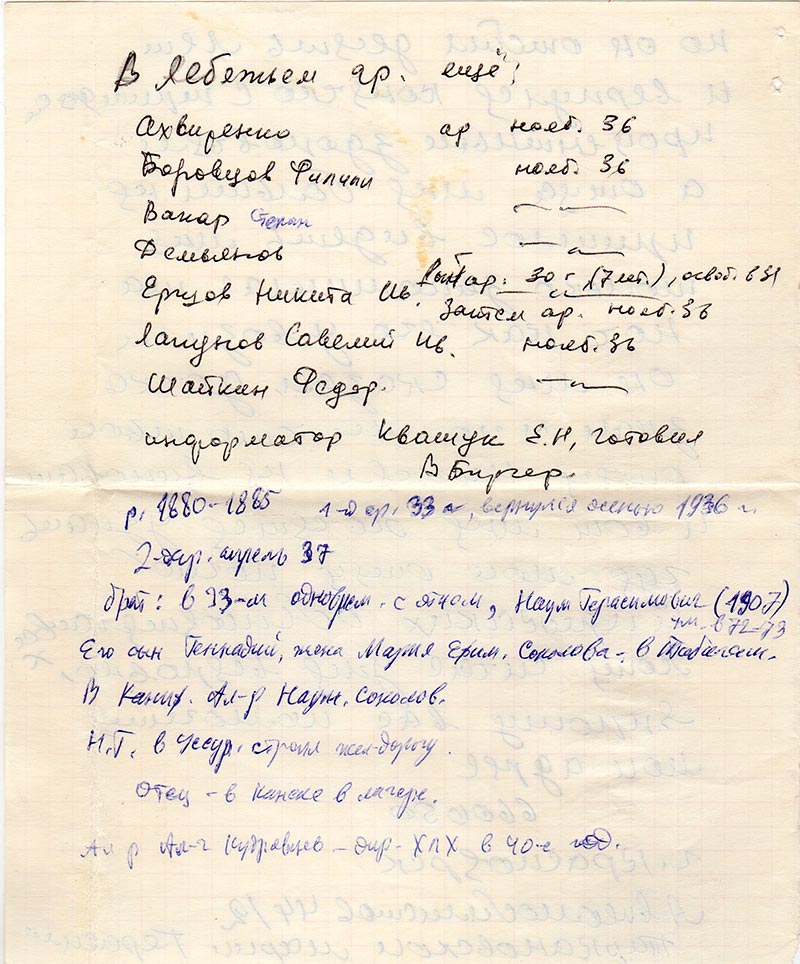 В Лебяжьем ар. ещё:
Ахвиренко ар нояб. 36
Боровцов Филипп нояб. 36
Вакар Степан —〃—
Демьянов —〃—
ар. 30 г (7 лет.), освоб. в 31
Ершов Никита Ив. Затем ар. нояб. 36
Лапунов Савелий Ив. нояб. 36
Шайкин Федор. —〃—
информатор Квашук Е.Н, готовил
В Биргер.
р. 1880-1885 1-й ар. 33 г, вернулся осенью 1936 г.
2-й ар. апрель 37
брат: в 33-м одноврем. с отцом, Наум Герасимович (1907)
ум. в 72-73
Его сын Геннадий, жена Мария Ефим. Соколова - в
В Ал-р Наум. Соколов.
Н.Г. в Уссур. строил жел-дорогу.
Отец - в Канске в лагере.
Ал-р Ал-ч Кудрявцев - дир. ХПХ в 40-е год.